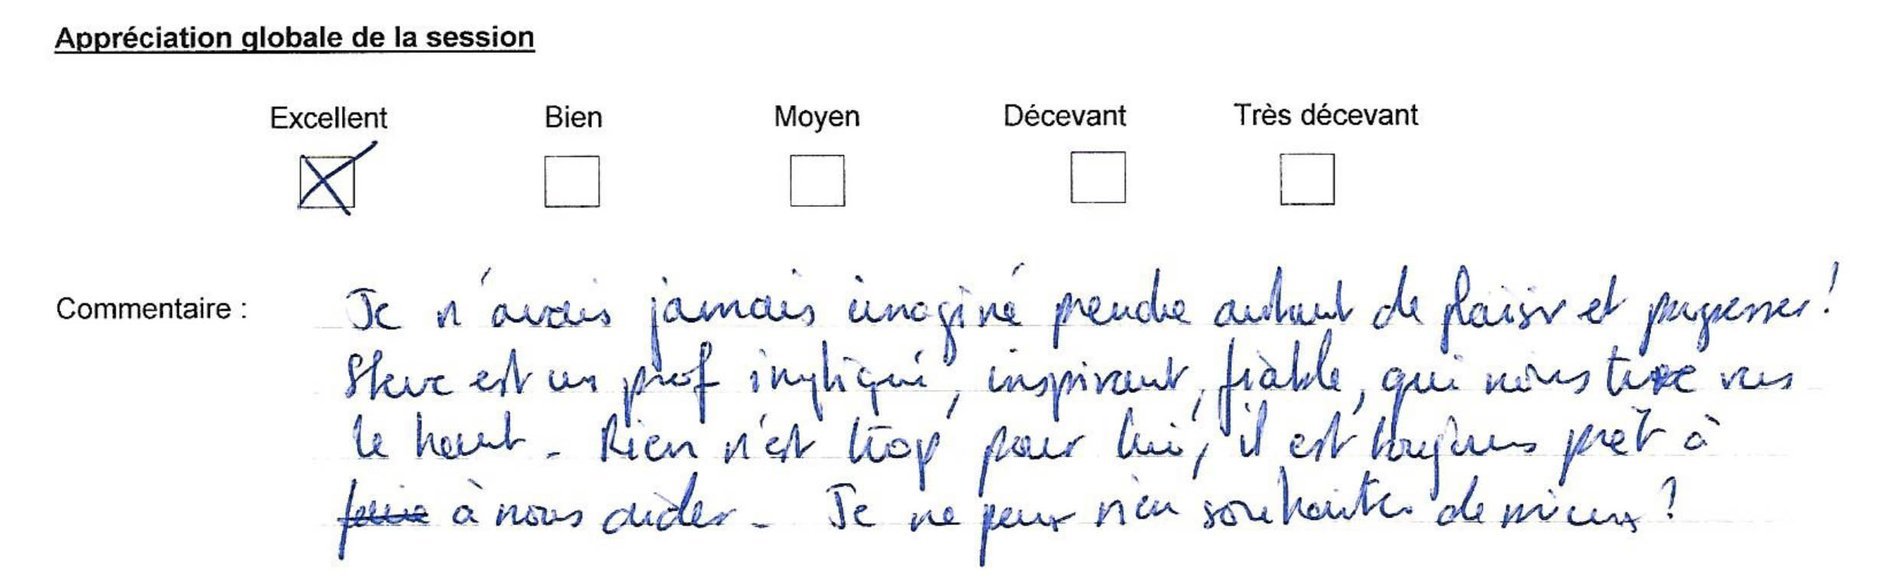 Appréciation globale de la session
Excellent Bien Moyen Décevant Très décevant
Commentaire : Je n'avais jamais imaginé prendre autant de plaisir et progresser !
Steve est un prof impliqué, inspirant, fiable, qui nous tire vers
le haut - Rien n'est trop pour lui, il est toujours prêt à
faire à nous aider - Je ne peux rien souhaiter de mieux ?